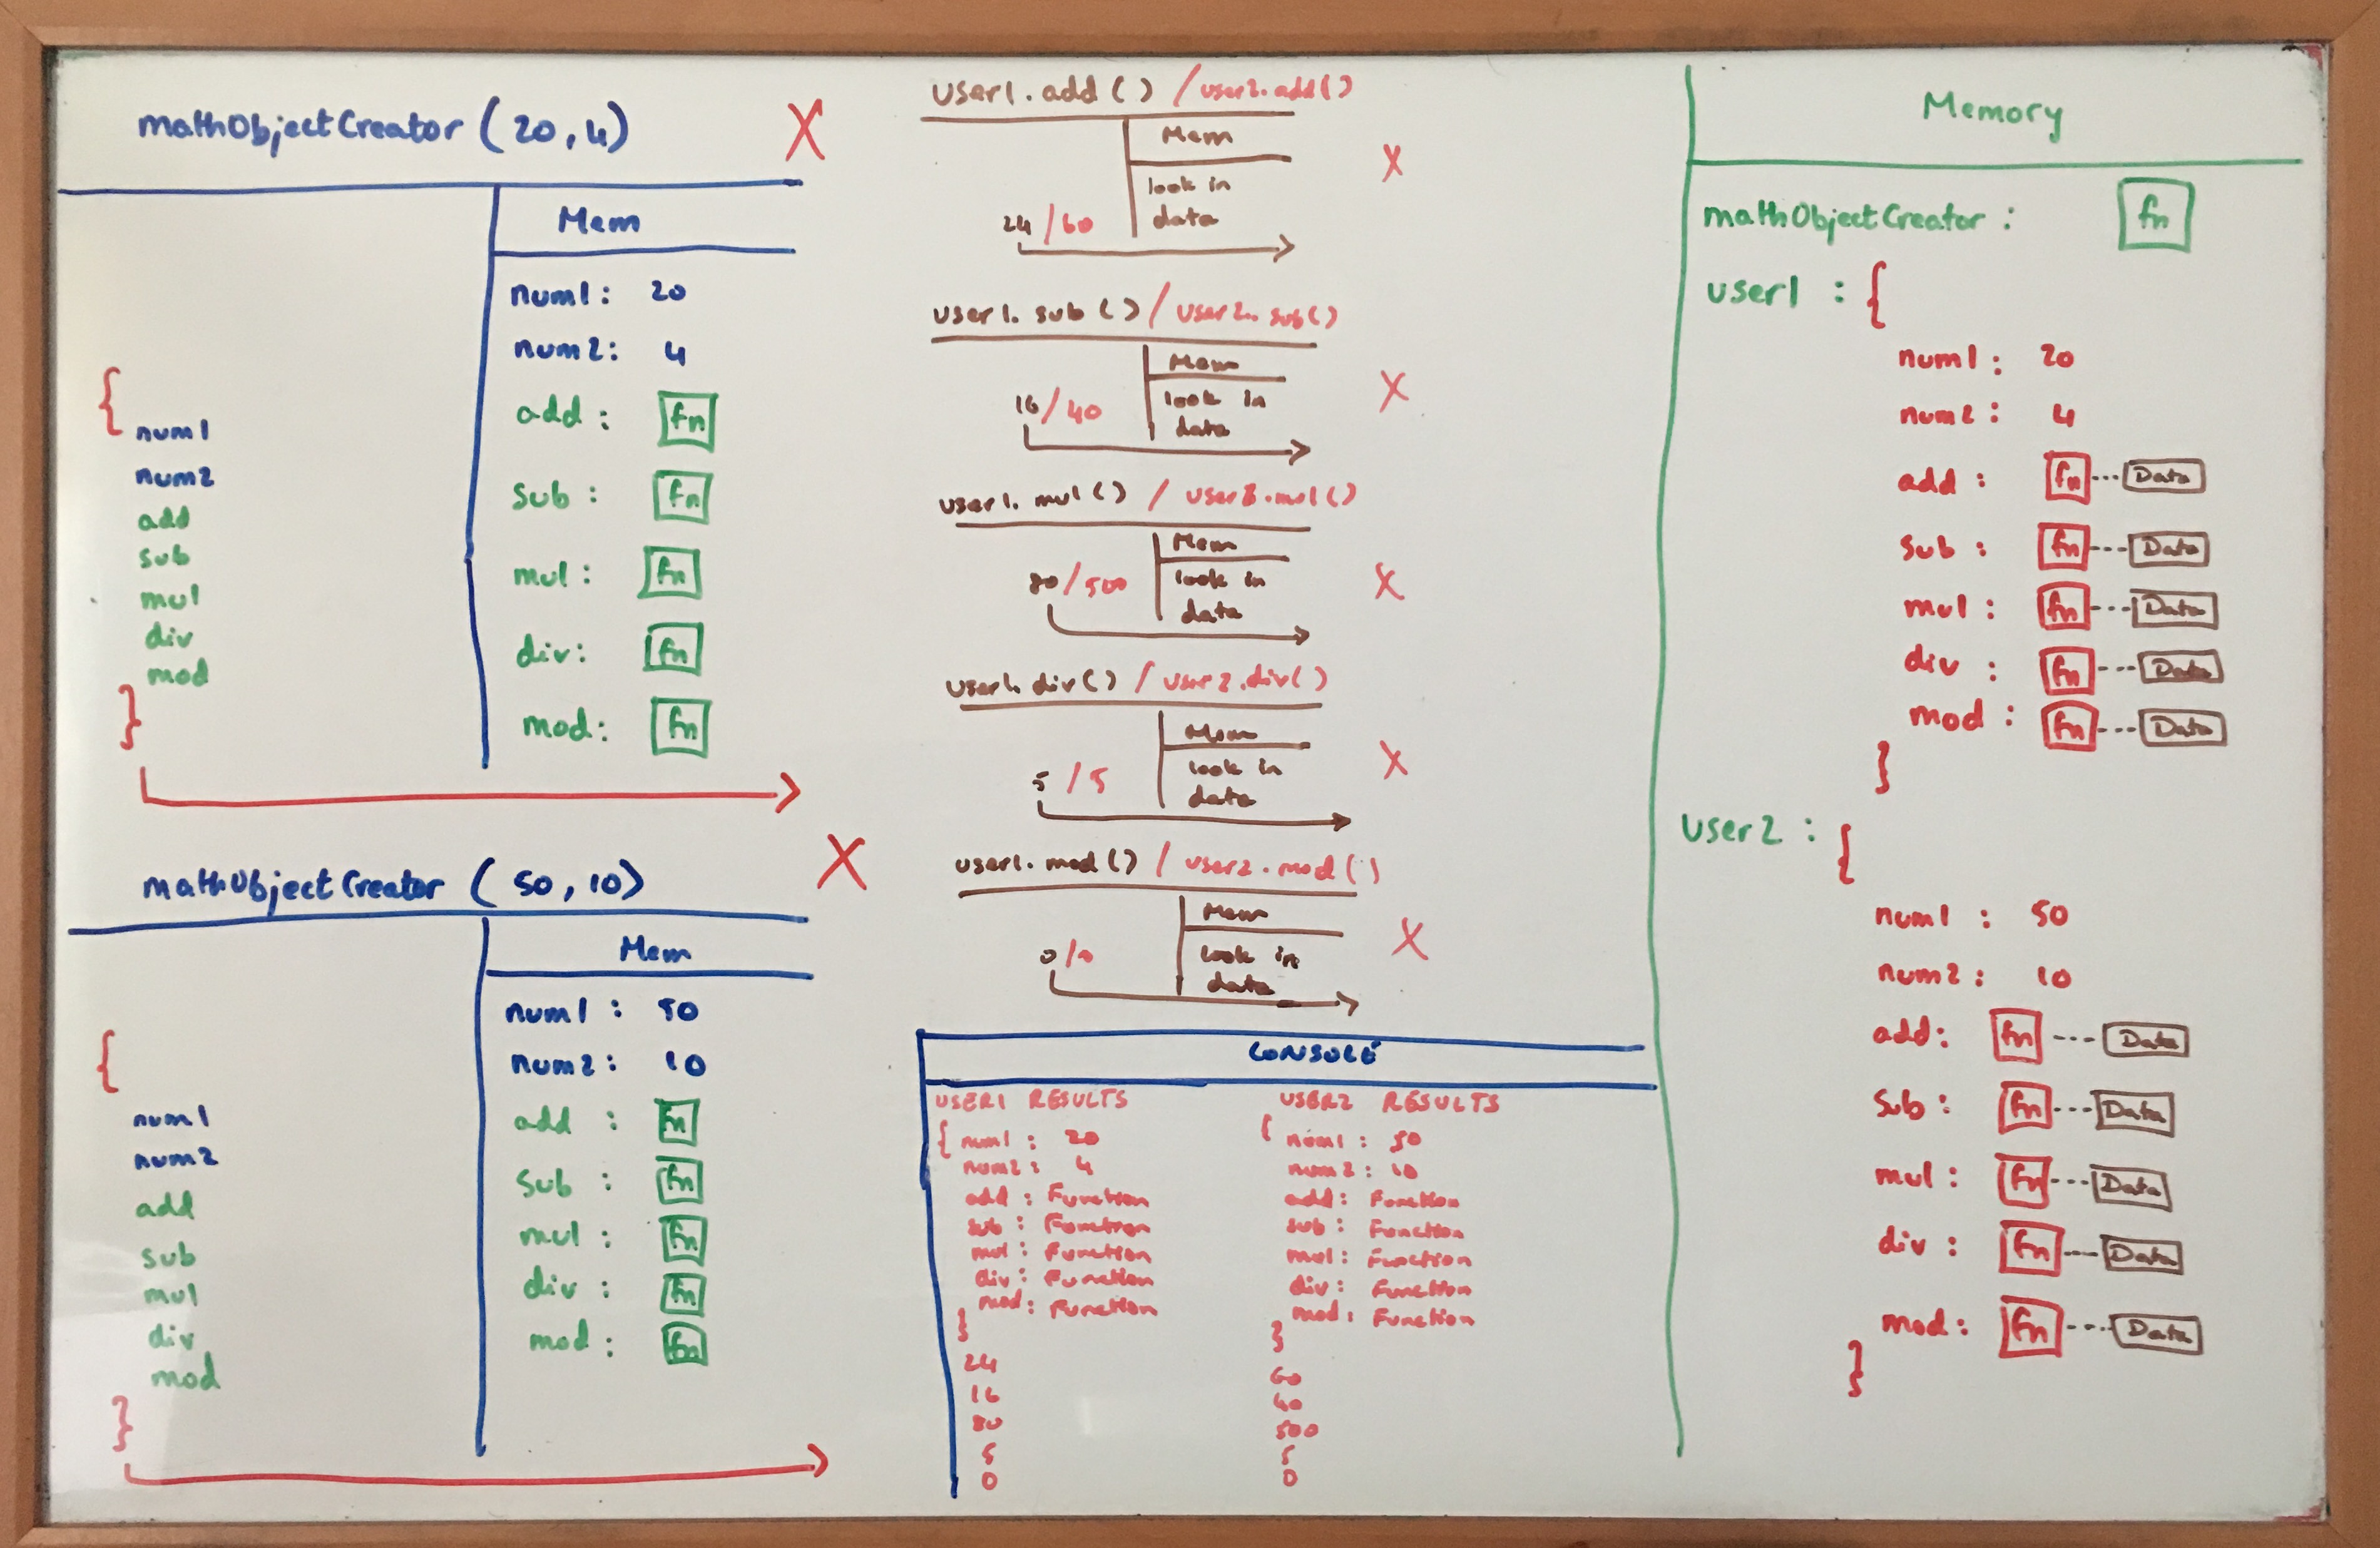 mathObjectCreator (20,4) X
Mem
num1: 20
num2: 4
add: fn
sub: fn
mul: fn
div: fn
mod: fn
{
num1
num2
add
sub
mul
div
mod
}
mathObjectCreator (50,10) X
Mem
num1: 50
num2: 10
add: fn
sub: fn
mul: fn
div: fn
mod: fn
{
num1
num2
add
sub
mul
div
mod
}
user1.add() / user2.add()
Mem
look in
data
24/60
X
user1.sub() / user2.sub()
Mem
look in
data
16/40
X
user1.mul() / user2.mul()
Mem
look in
data
80/500
X
user1.div() / user2.div()
Mem
look in
data
5/5
X
user1.mod() / user2.mod()
Mem
look in
data
0/0
X
CONSOLE
USER1 RESULTS
{ num1: 20
num2: 4
add: Function
sub: Function
mul: Function
div: Function
mod: Function
}
24
16
80
5
0
USER2 RESULTS
{ num1: 50
num2: 10
add: Function
sub: Function
mul: Function
div: Function
mod: Function
}
60
40
500
5
0
Memory
mathObjectCreator: fn
user1: {
num1: 20
num2: 4
add: fn---Data
sub: fn---Data
mul: fn---Data
div: fn---Data
mod: fn---Data
}
user2: {
num1: 50
num2: 10
add: fn---Data
sub: fn---Data
mul: fn---Data
div: fn---Data
mod: fn---Data
}